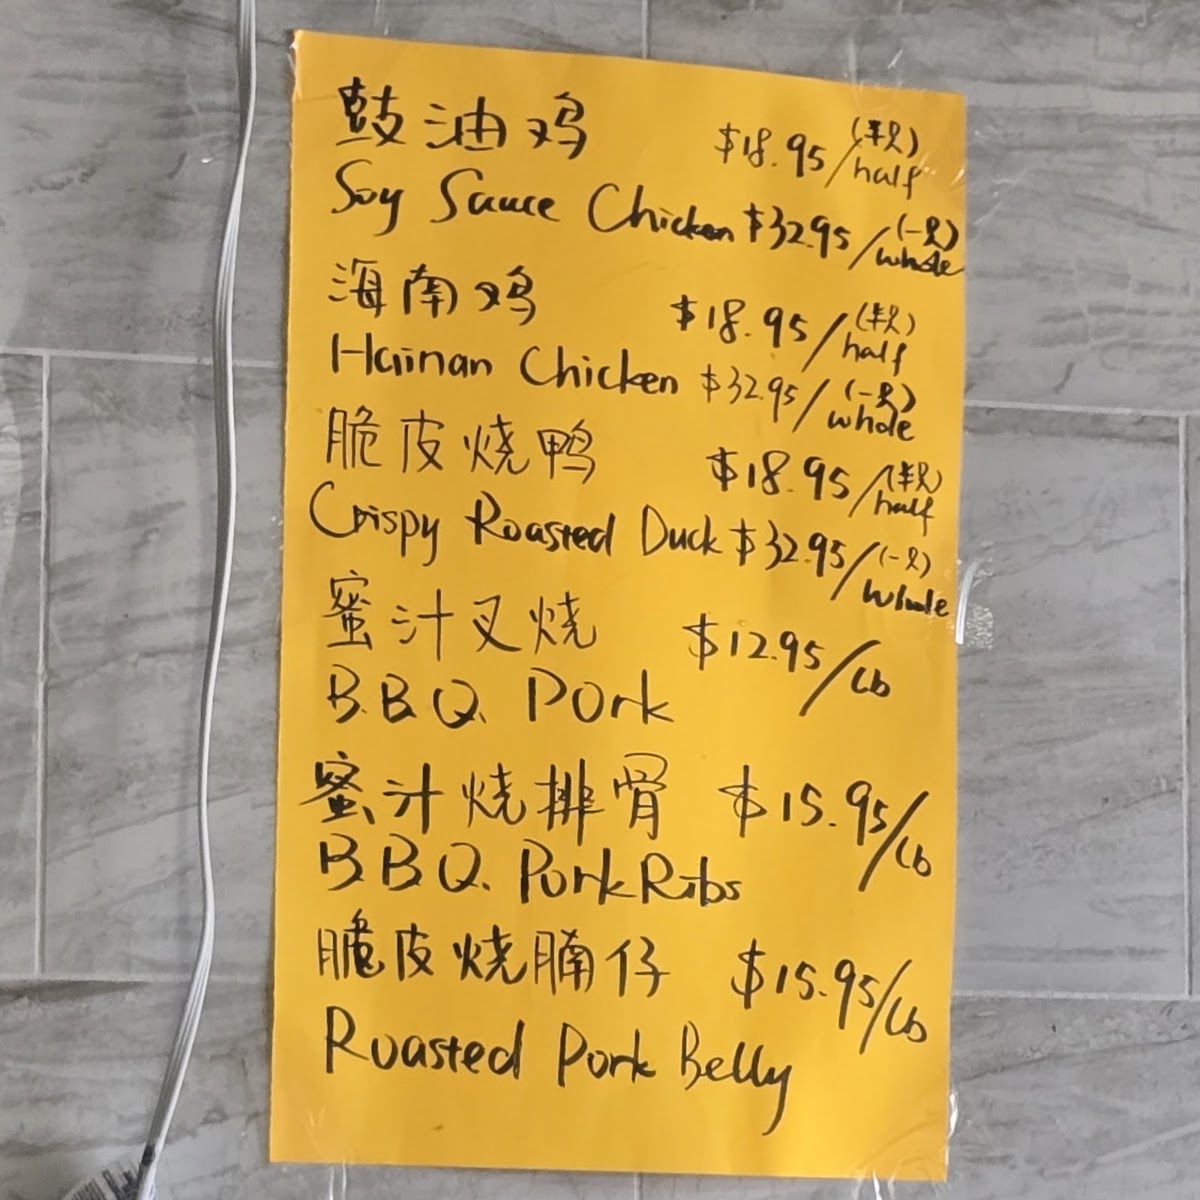 鼓油鸡 $18.95/(半只) half
Soy Sauce Chicken $32.95/(一只) whole
海南鸡 $18.95/(半只) half
Hainan Chicken $32.95/(一只) whole
脆皮烧鸭 $18.95/(半只) half
Crispy Roasted Duck $32.95/(一只) whole
蜜汁叉烧 $12.95/Lb
B.B.Q. Pork
蜜汁烧排骨 $15.95/Lb
B.B.Q. Pork Ribs
脆皮烧腩仔 $15.95/Lb
Roasted Pork Belly